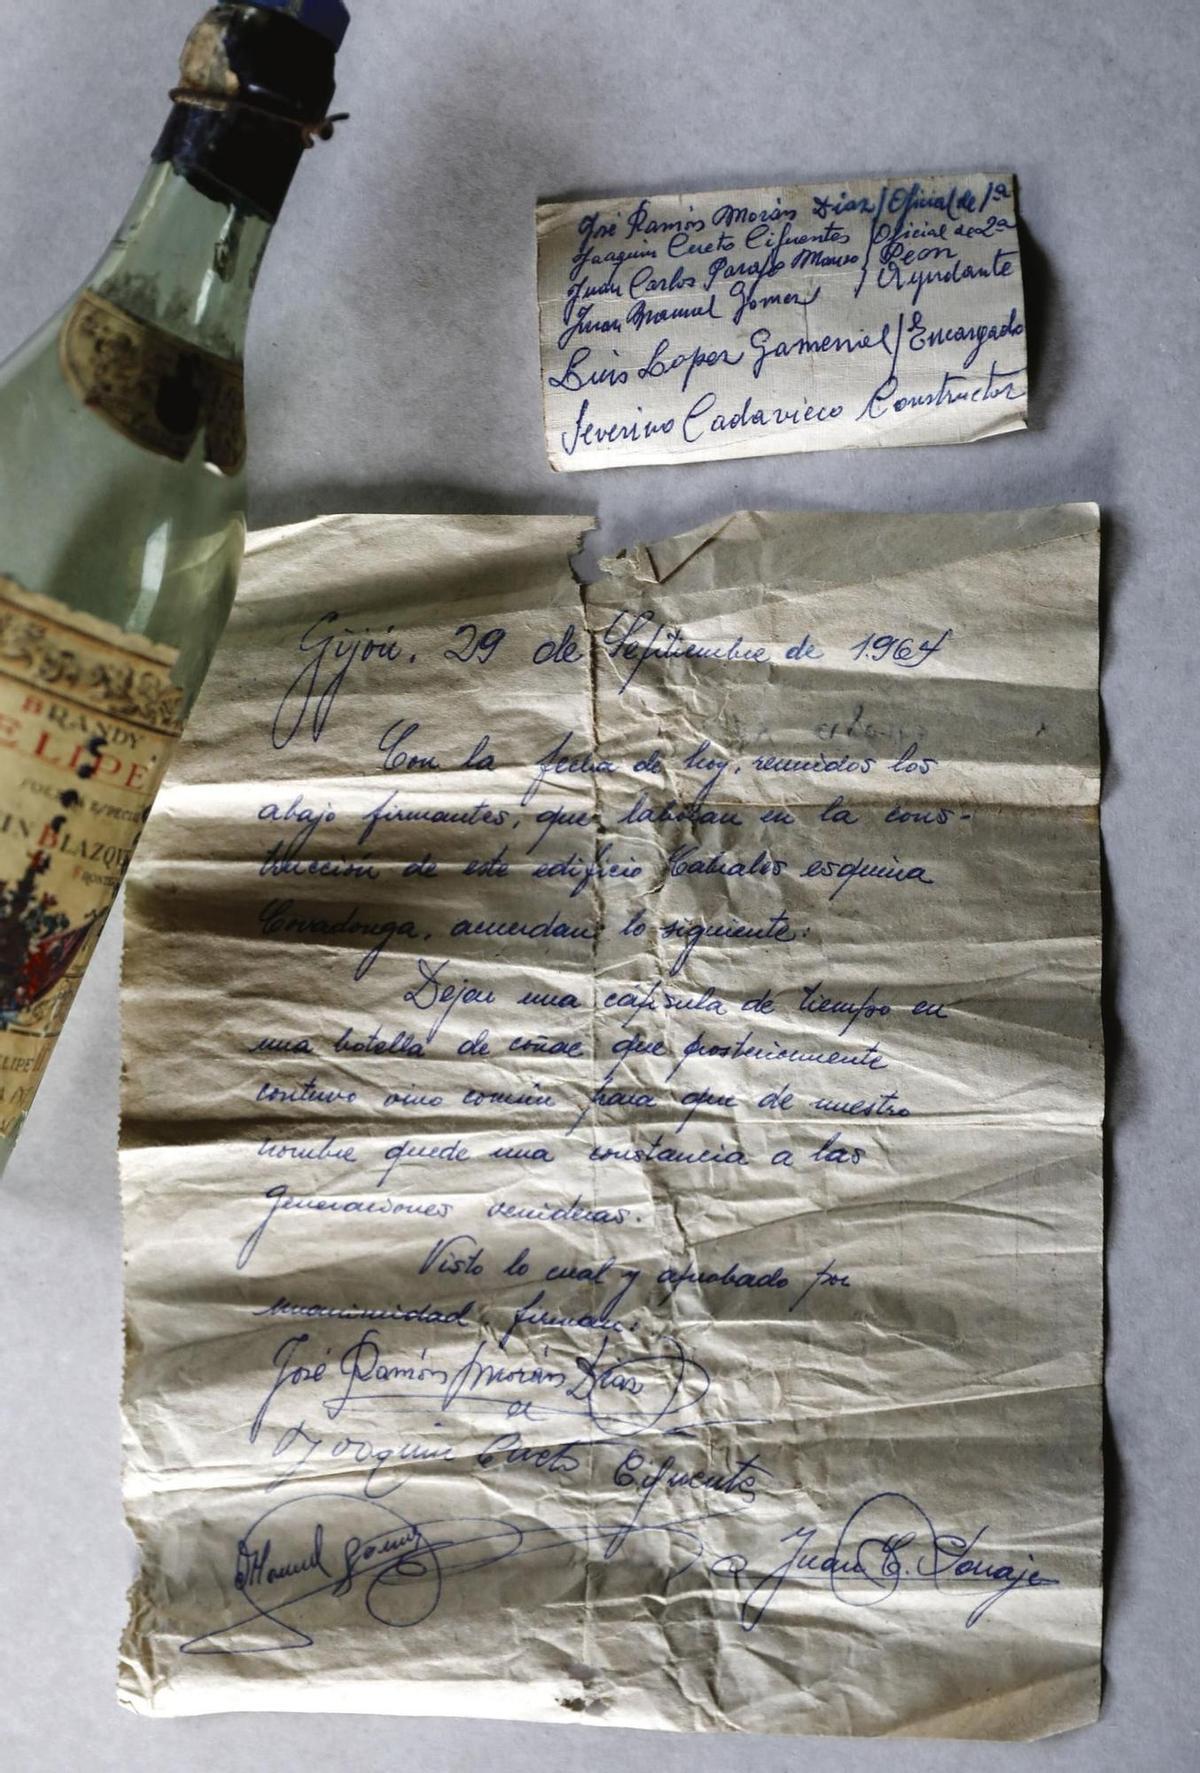 José Ramón Morán Diaz / Oficial de 1ª
Joaquin Cueto Cifuentes / Oficial de 2ª
Juan Carlos Parajo Manso / Peon
Juan Manuel Gomez / Ayudante
Luis Lopez / Encargado
Severino Cadavieco Constructor
Gijón, 29 de Septiembre de 1964
Con la fecha de hoy, reunidos los
abajo firmantes, que laboran en la cons-
trucción de este edificio Cabrales esquina
Covadonga, acuerdan lo siguiente:
Dejar una cápsula de tiempo en
una botella de coñac que posteriormente
contuvo vino común para que de nuestro
nombre quede una constancia a las
generaciones venideras.
Visto lo cual y aprobado por
unanimidad, firman:
José Ramón Morán Díaz
Joaquin Cueto Cifuentes
Manuel Gómez
Juan C. Parajo
BRANDY
ELIPE
BLAZQU
LIPE